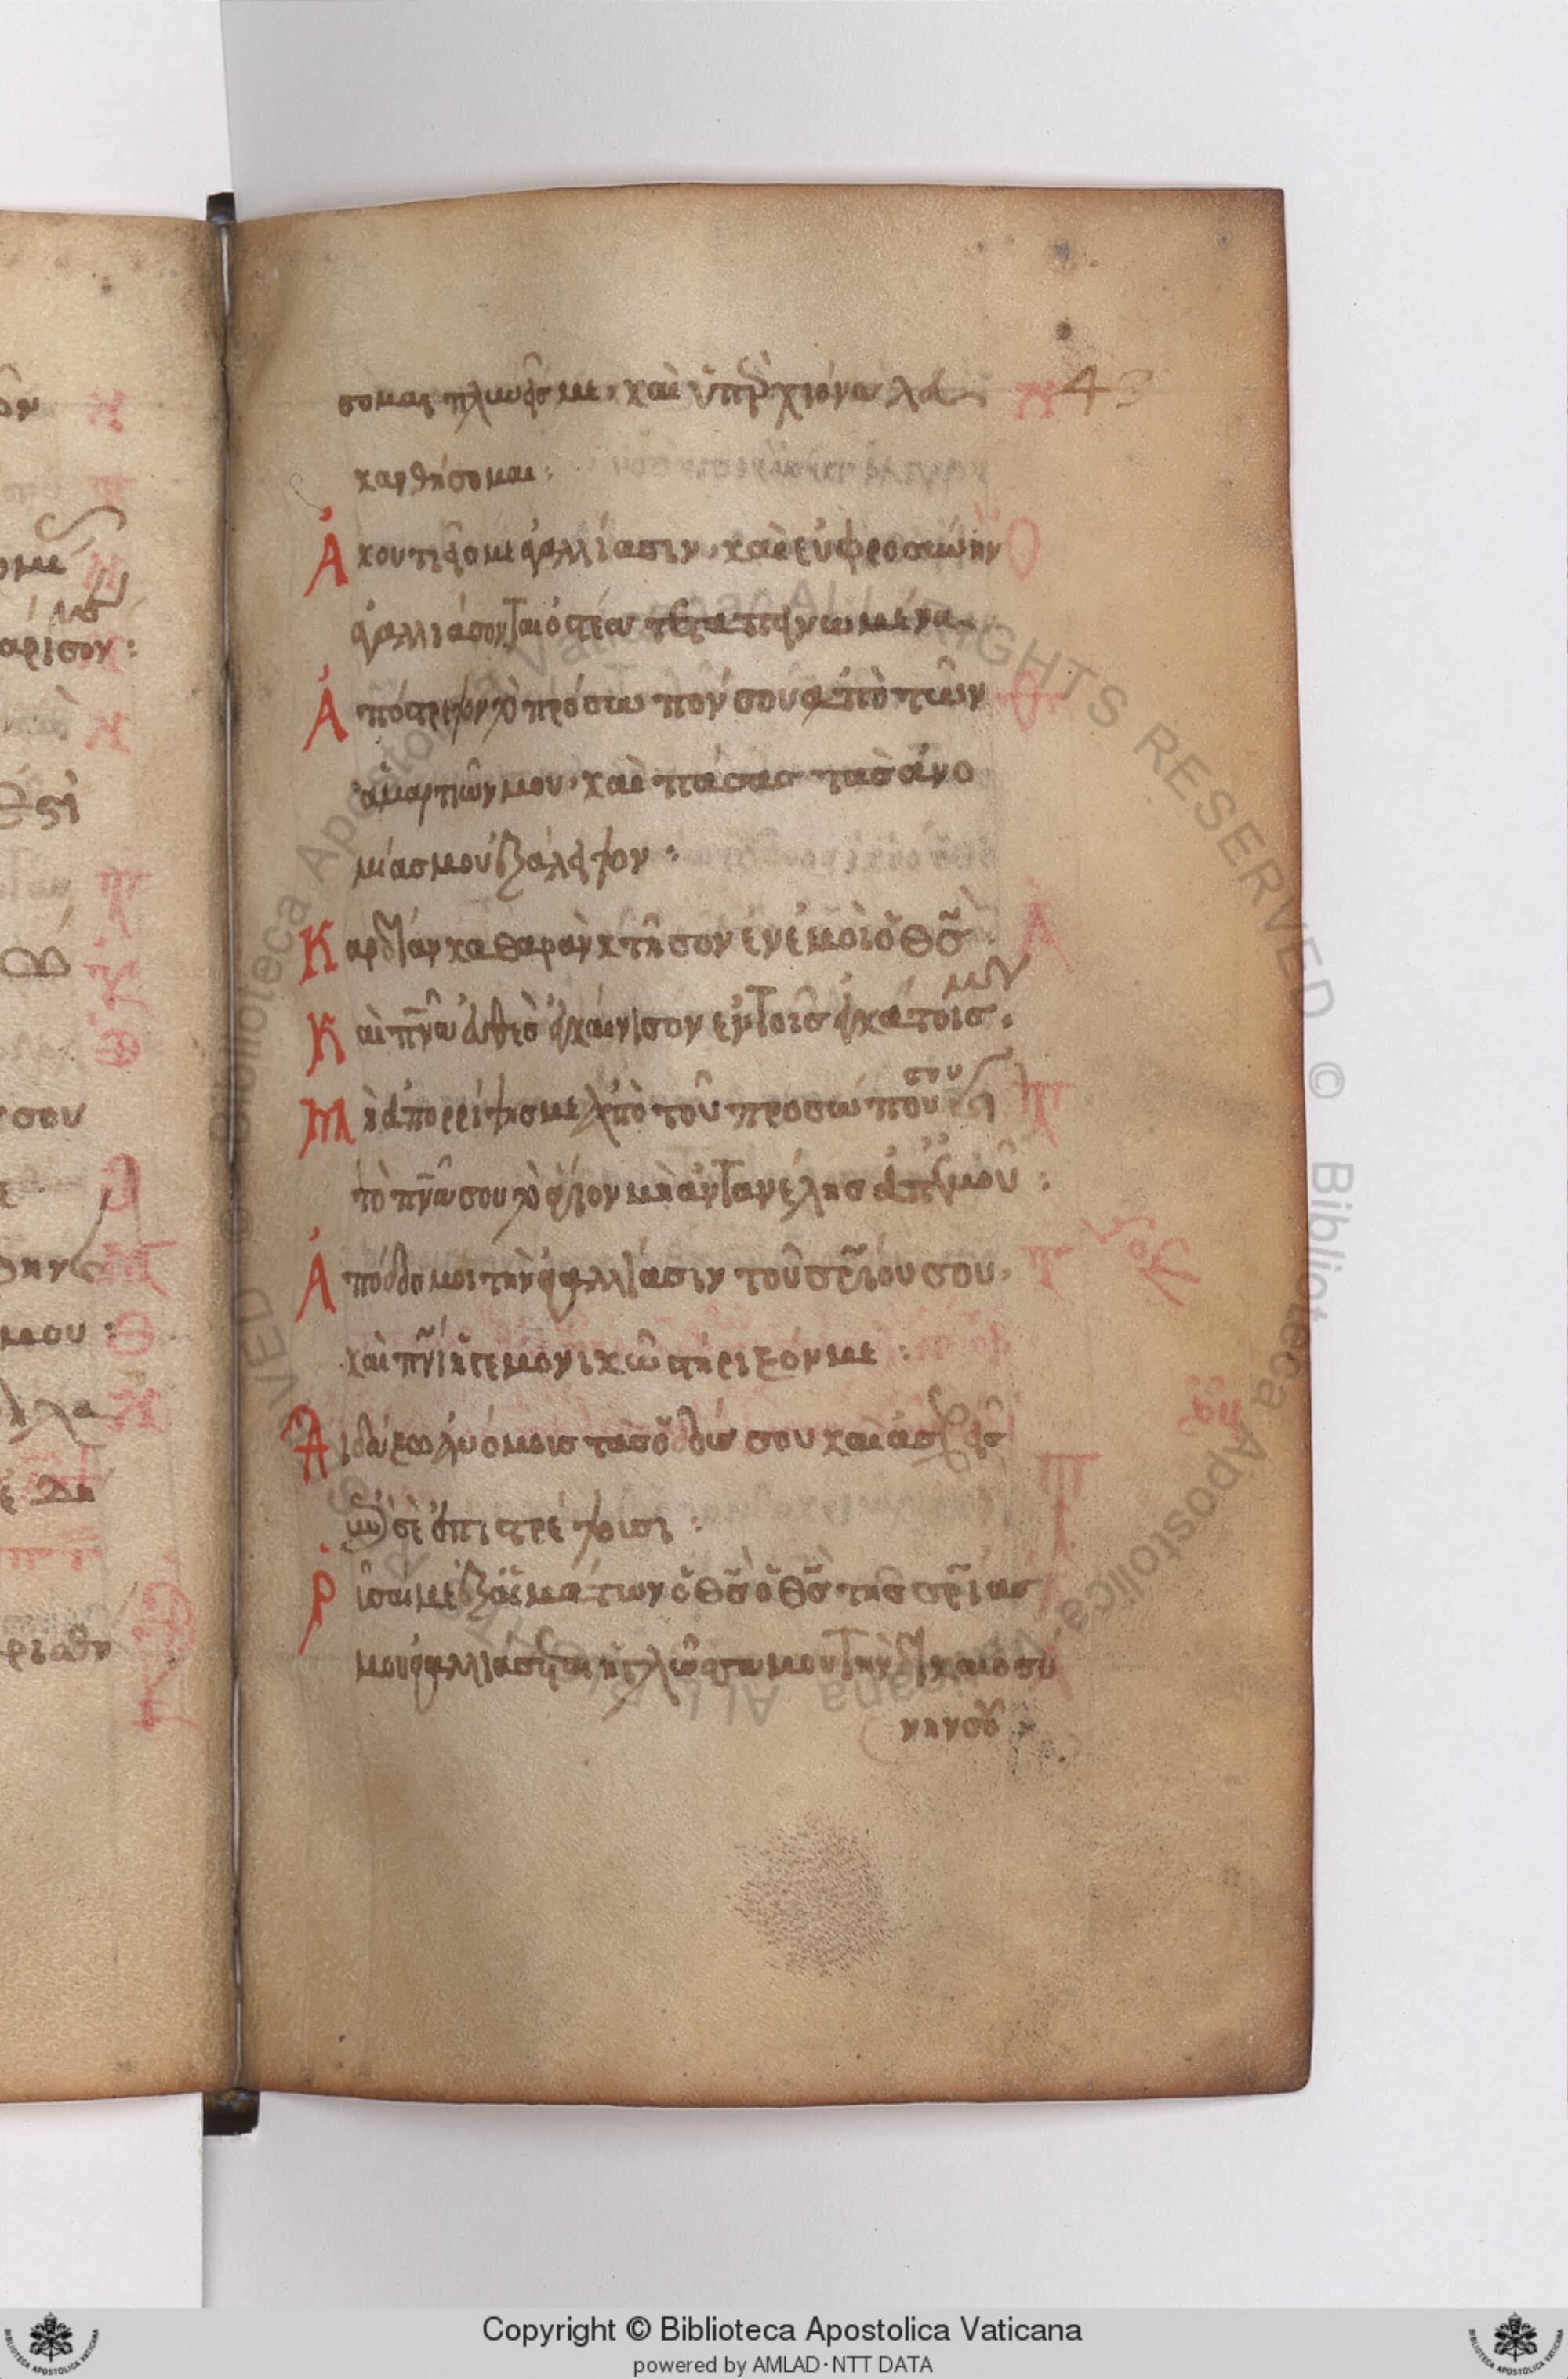 σομαι πλυνεῖς με· καὶ ὑπὲρ χιόνα λευ 43
κανθήσομαι:
Ἀκουτιεῖς με ἀγαλλίασιν· καὶ εὐφροσύνην
ἀγαλλιάσονται ὀστέα τεταπεινωμένα
Ἀπόστρεψον τὸ πρόσωπόν σου ἀπὸ τῶν
ἁμαρτιῶν μου· καὶ πάσας τὰς ἀνο
μίας μου ἐξάλειψον:
Καρδίαν καθαρὰν κτῆσον ἐν ἐμοὶ ὁ θς
Καὶ πνα εὐθὲς ἐγκαίνισον ἐν τοῖς ἐγκάτοις μου
Μὴ ἀπορρίψης με ἀπὸ τοῦ προσώπου σου καὶ
τὸ πνα σου τὸ ἅγιον μὴ ἀντανέλης ἀπ' ἐμοῦ:
Ἀπόδος μοι τὴν ἀγαλλίασιν τοῦ σρίου σου·
καὶ πνι ἡγεμονικῶ στήριξόν με:
Διδάξω ἀνόμοις τὰς ὁδούς σου καὶ ἀσεβεῖς
ἐπὶ σὲ ἐπιστρέψουσι:
Ῥῦσαί με ἐξ αἱμάτων ὁ θς ὁ θς τῆς σρίας
μου ἀγαλλιάσεται ἡ γλῶσσα μου τὴν δικαιοσύ
νην σου
Copyright © Biblioteca Apostolica Vaticana
powered by AMLAD·NTT DATA